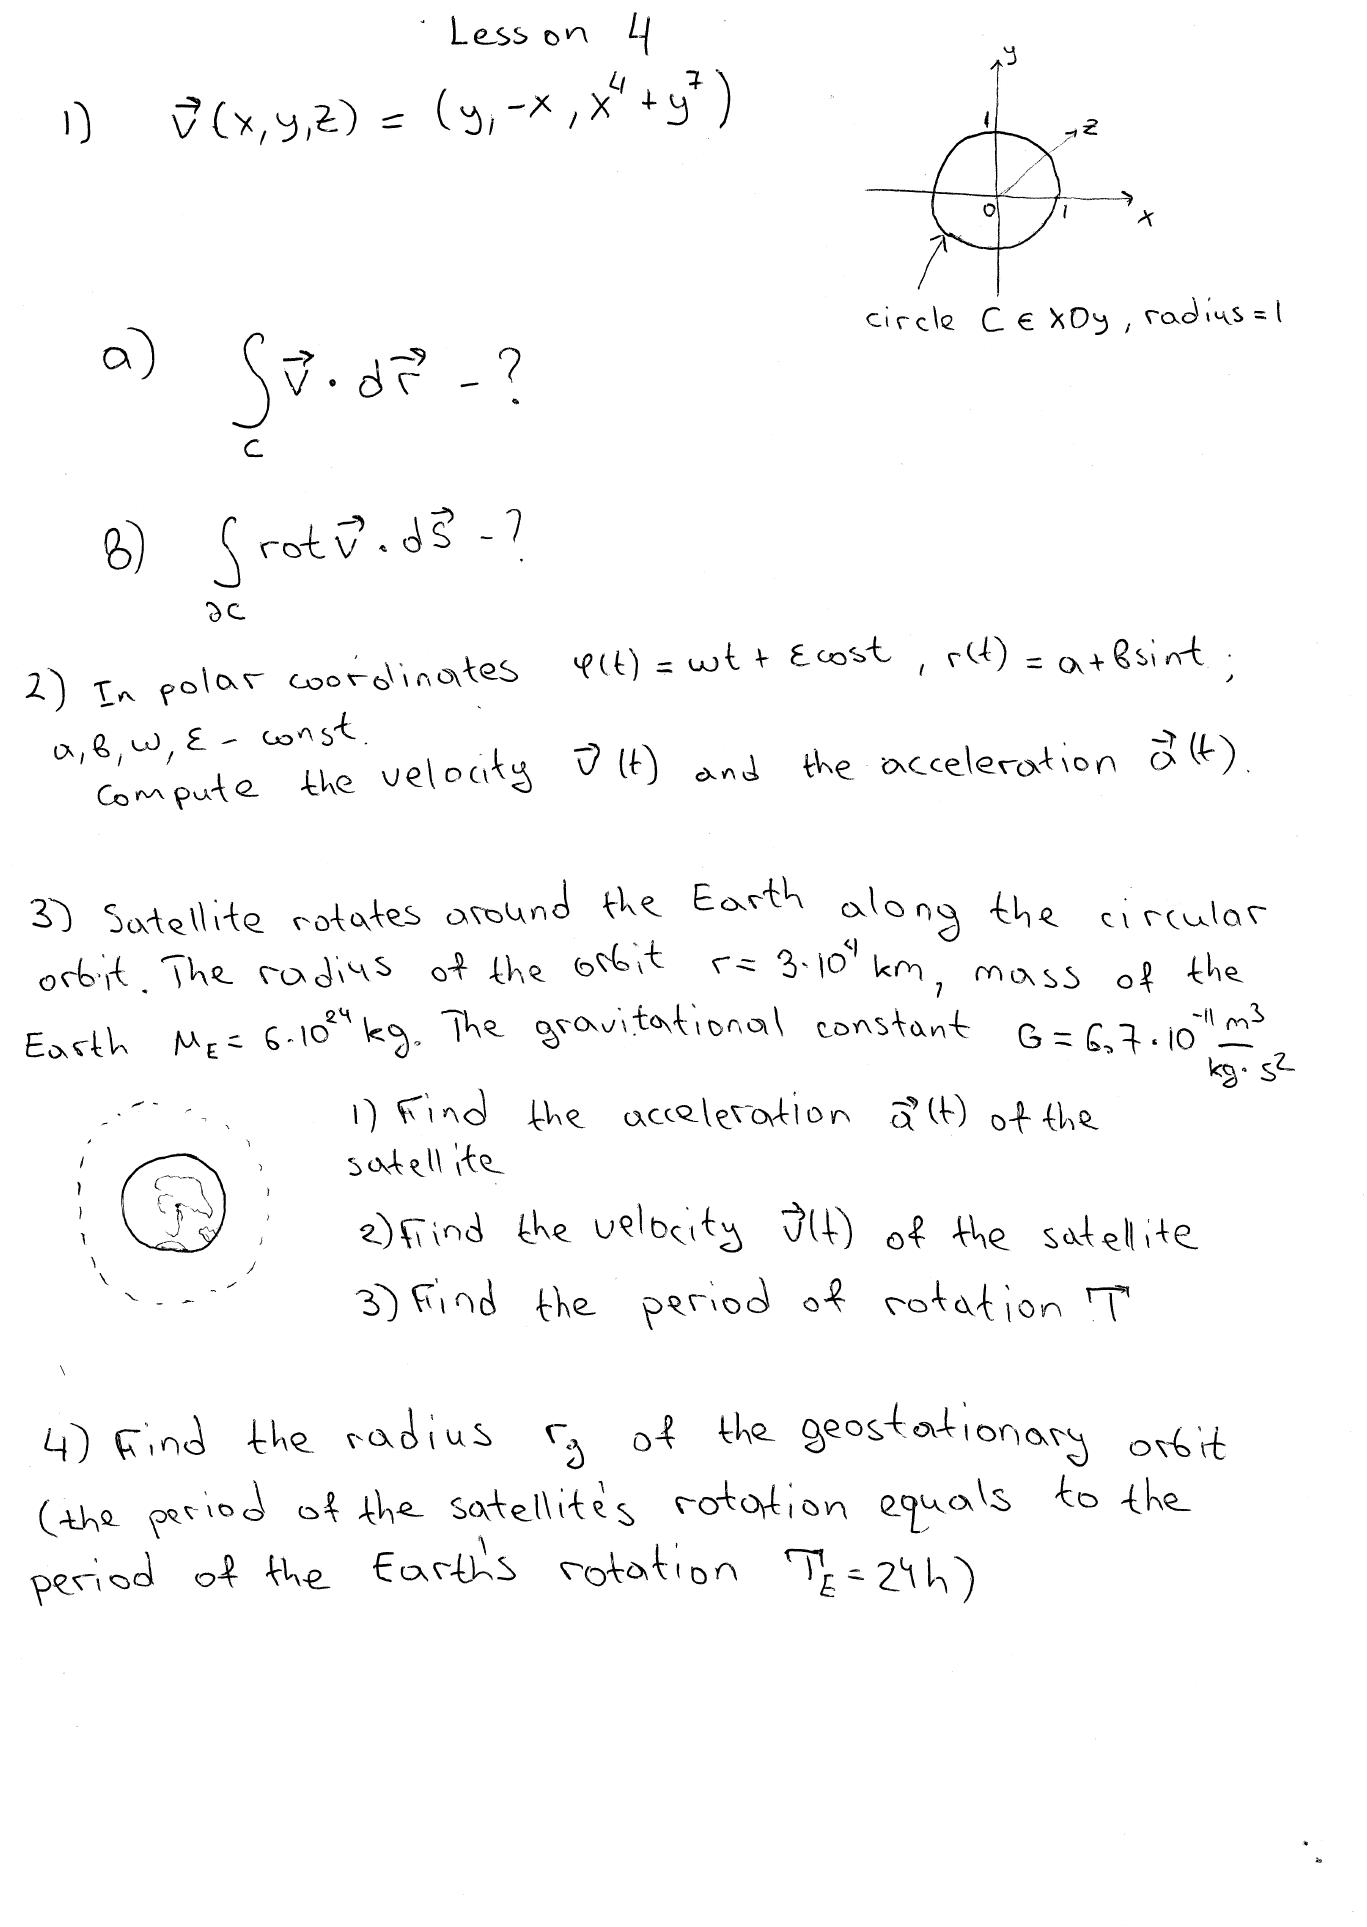 Lesson 4
1) v⃗(x,y,z) = (y, -x, x⁴ + y⁷)
y
1
z
0
1
x
circle C ∈ XOy, radius = 1
a) ∫_C v⃗ · dr⃗ - ?
в) ∫_∂C rot v⃗ · ds⃗ - ?
2) In polar coordinates φ(t) = ωt + ε cost , r(t) = a + в sint ;
a, в, ω, ε - const.
Compute the velocity v⃗(t) and the acceleration a⃗(t).
3) Satellite rotates around the Earth along the circular
orbit. The radius of the orbit r = 3·10⁴ km, mass of the
Earth M_E = 6·10²⁴ kg. The gravitational constant G = 6,7·10⁻¹¹ m³/kg·s²
1) Find the acceleration a⃗(t) of the
satellite
2) Find the velocity v⃗(t) of the satellite
3) Find the period of rotation T
4) Find the radius r_g of the geostationary orbit
(the period of the satellite's rotation equals to the
period of the Earth's rotation T_E = 24h)